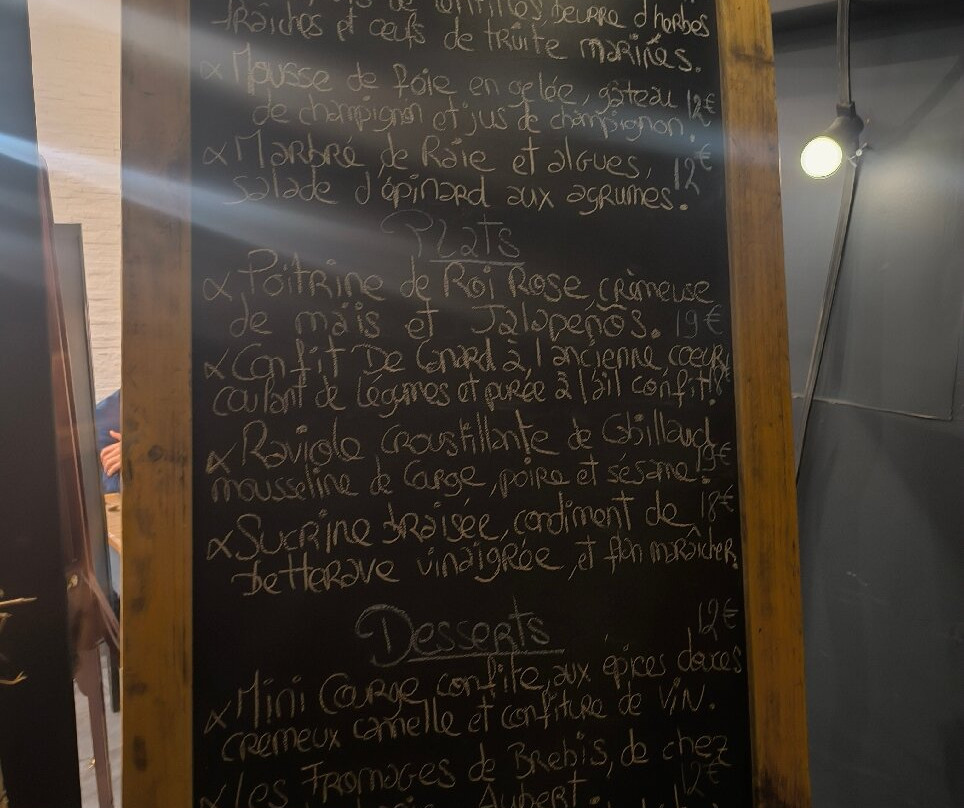 de lentilles, beurre d'herbes
fraîches et œufs de truite marinés.
∝ Mousse de foie en gelée, gâteau 12€
de champignon et jus de champignon.
∝ Marbré de Raie et algues, 12€
salade d'épinard aux agrumes.
Plats
∝ Poitrine de Roi Rose, crèmeuse
de maïs et Jalapeños. 19€
∝ Confit De Canard à l'ancienne, coeur
coulant de légumes et purée à l'ail confit.
∝ Raviole croustillante de Cabillaud,
mousseline de Courge, poire et sésame. 19€
∝ Sucrine braisée, condiment de 18€
betterave vinaigrée, et flan maraîcher.
Desserts 12€
∝ Mini Courge confite, aux épices douces
crémeux cannelle et confiture de ViN.
∝ Les Fromages de Brebis, de chez
Aubert 12€